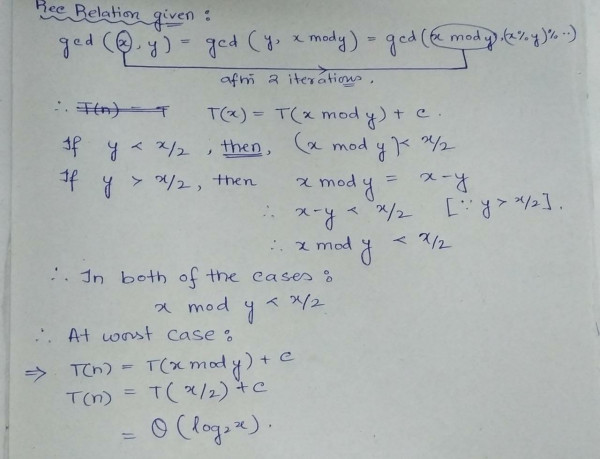 Rec Relation given :
gcd (x, y) = gcd (y, x mod y) = gcd ((x mod y), (x%y)%..)
after 2 iterations.
∴ T(n) = T T(x) = T(x mod y) + c.
If y < x/2 , then, (x mod y) < x/2
If y > x/2, then x mod y = x-y
∴ x-y < x/2 [∵ y > x/2].
∴ x mod y < x/2
∴ In both of the cases :
x mod y < x/2
∴ At worst case :
⇒ T(n) = T(x mod y) + c
T(n) = T(x/2) + c
= Θ(log₂x).